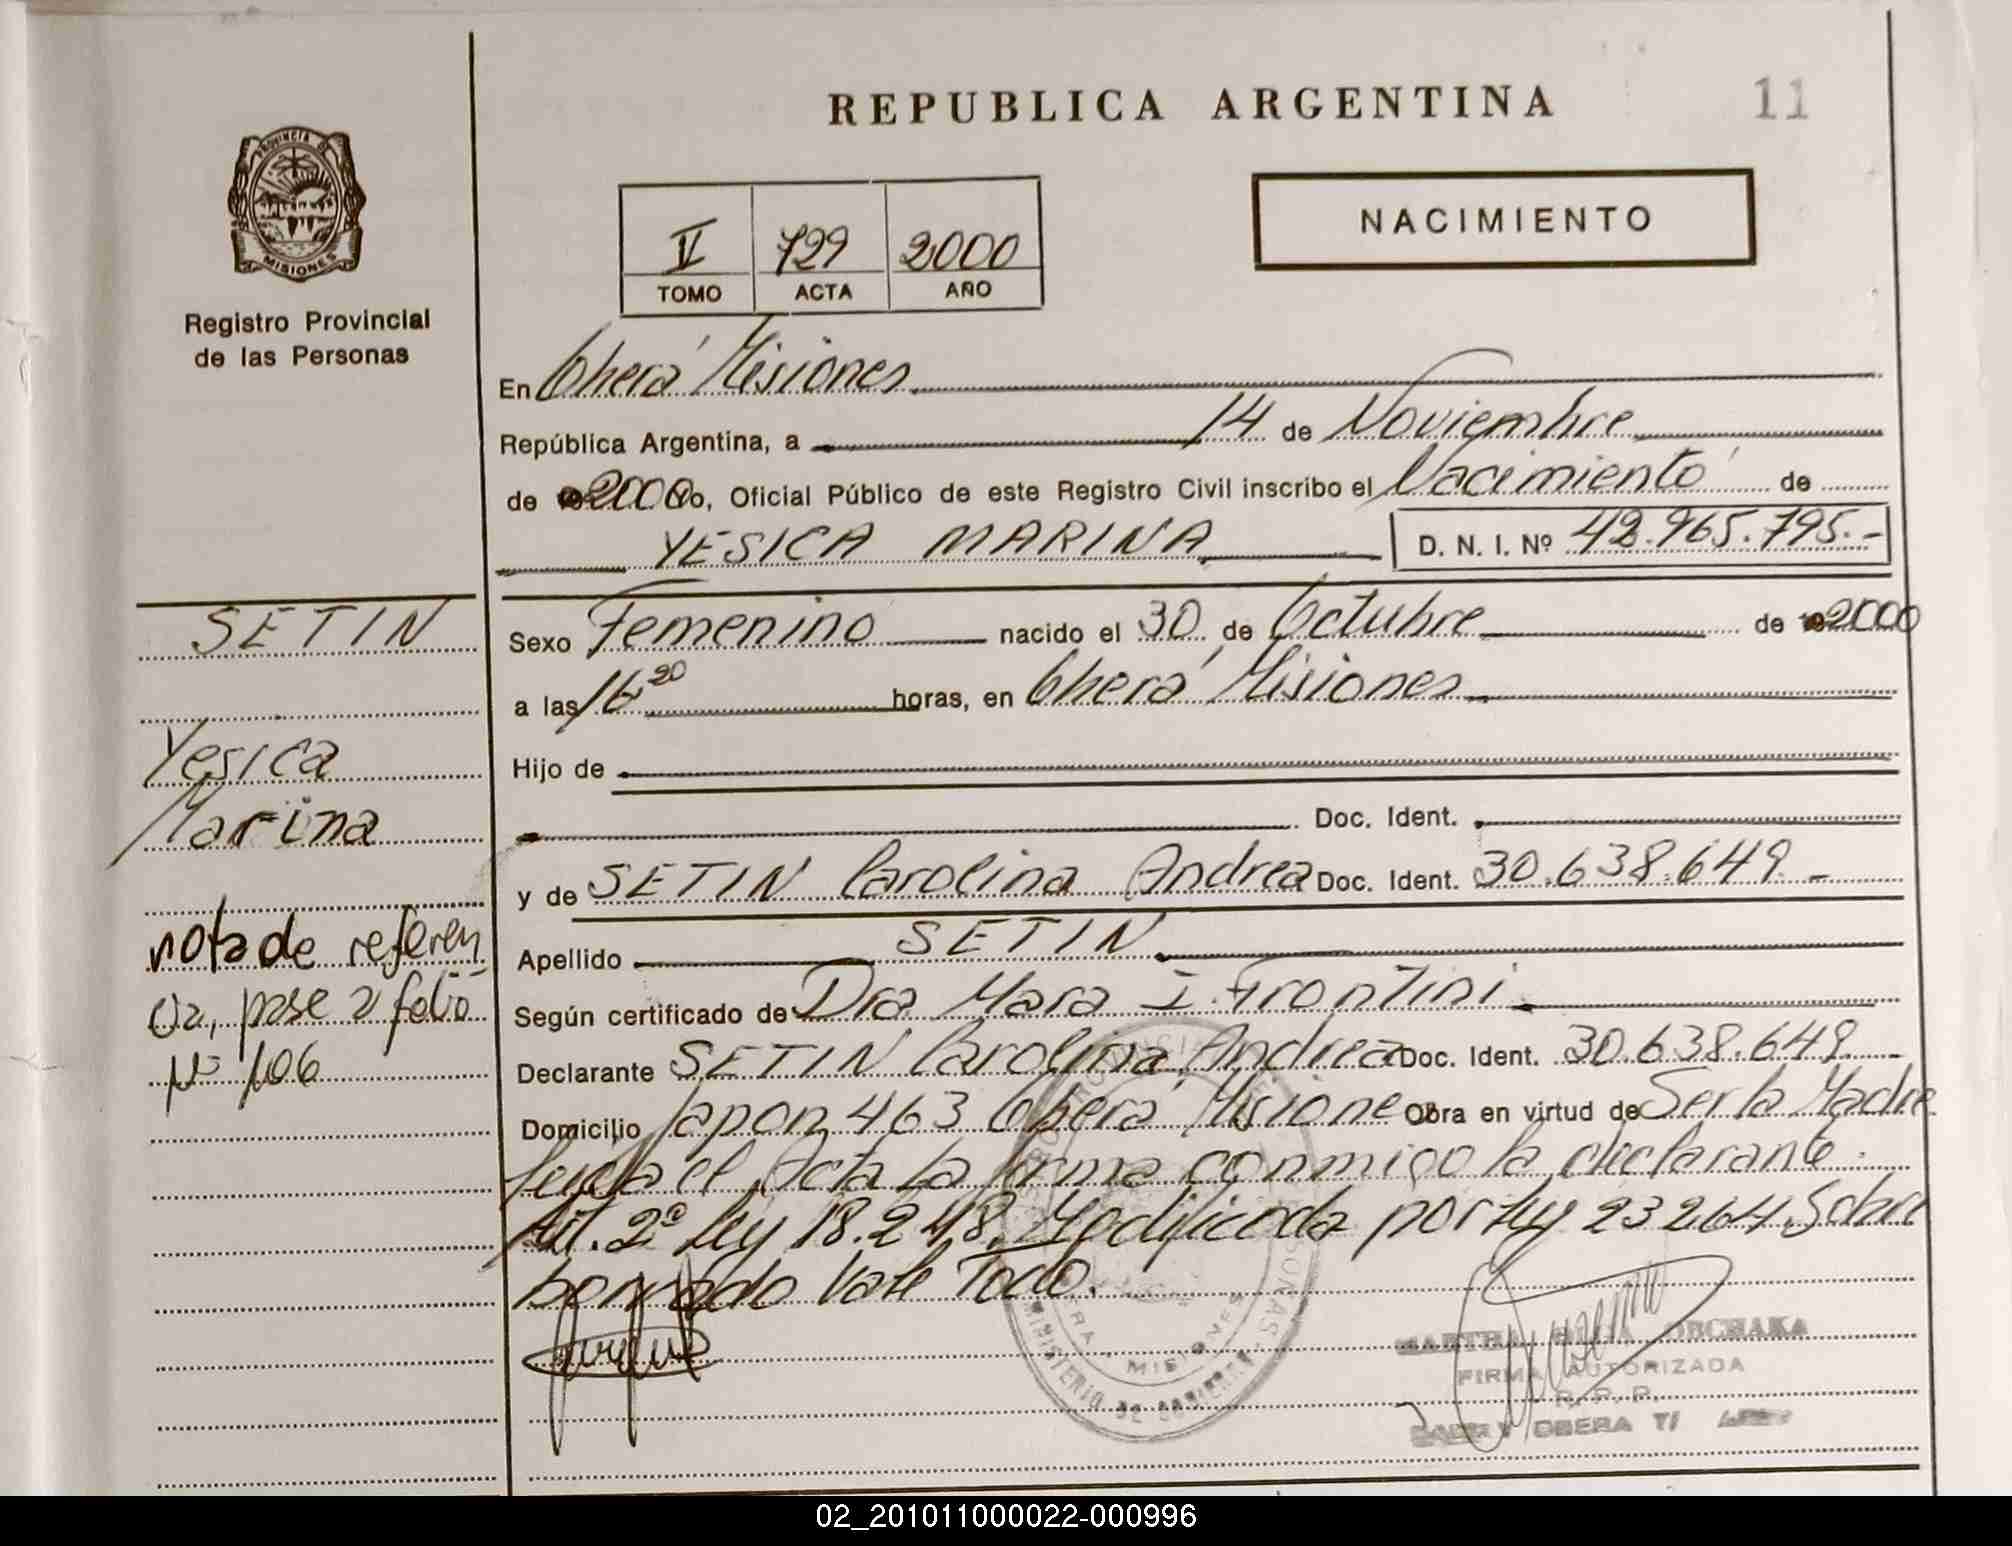 REPUBLICA ARGENTINA
11
PROVINCIA DE
MISIONES
Registro Provincial
de las Personas
V 729 2000
TOMO ACTA AÑO
NACIMIENTO
En Oberá Misiones
República Argentina, a 14 de Noviembre
de 2000 Yo, Oficial Público de este Registro Civil inscribo el Nacimiento de
YESICA MARINA D. N. I. Nº 42.965.795.-
SETIN
Yesica
Marina
nota de referen
cia, pase a folio
Nº 106
Sexo Femenino nacido el 30 de Octubre de 2000
a las 16,20 horas, en Oberá Misiones
Hijo de
Doc. Ident.
y de SETIN Carolina Andrea Doc. Ident. 30.638.649.-
Apellido SETIN
Según certificado de Dra Mara I. Frontini
Declarante SETIN Carolina Andrea Doc. Ident. 30.638.649.-
Domicilio Japon 463 Oberá Misiones Obra en virtud de Ser la Madre
leida el Acta la firma conmigo la declarante.
Art. 2º ley 18.248. Modificada por ley 23264. Sobre
borrado Vale Todo.
MINISTERIO DE GOBIERNO
MISIONES
MARTHA OBCHAKA
FIRMA AUTORIZADA
R. P. P.
OBERA
02_201011000022-000996